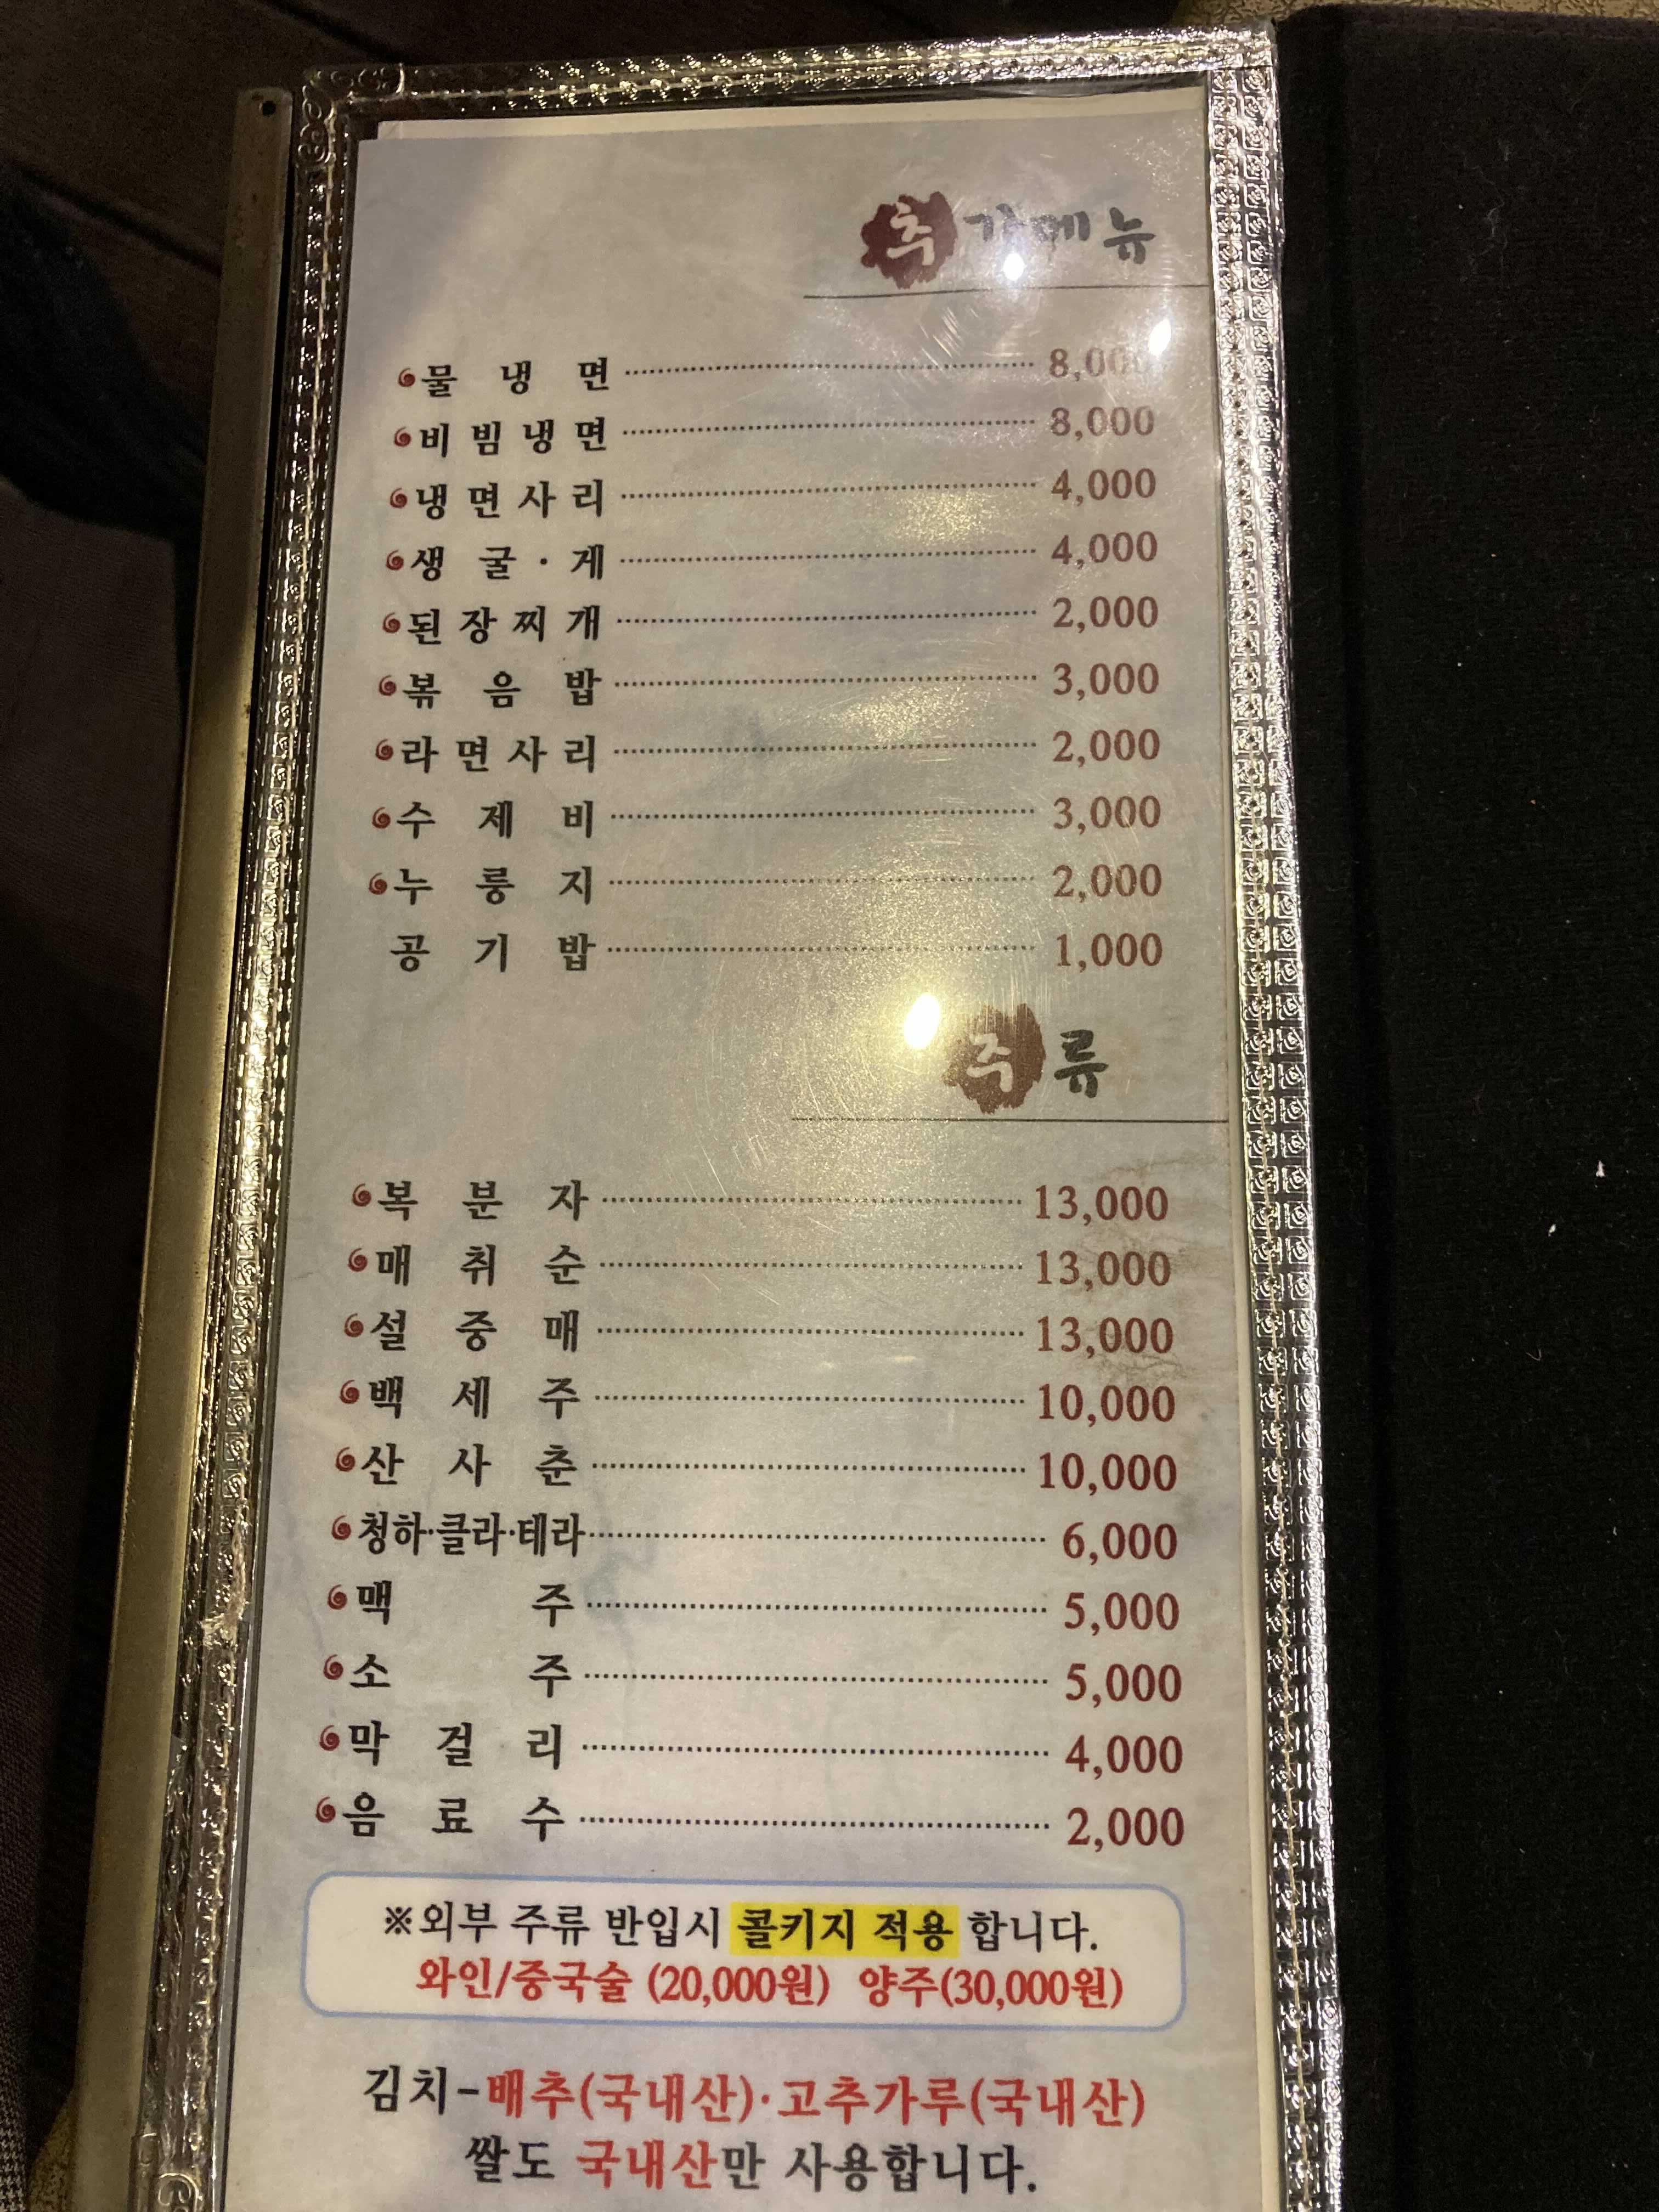 추가메뉴
물냉면 8,000
비빔냉면 8,000
냉면사리 4,000
생굴·게 4,000
된장찌개 2,000
볶음밥 3,000
라면사리 2,000
수제비 3,000
누룽지 2,000
공기밥 1,000
주류
복분자 13,000
매취순 13,000
설중매 13,000
백세주 10,000
산사춘 10,000
청하·클라·테라 6,000
맥주 5,000
소주 5,000
막걸리 4,000
음료수 2,000
※외부 주류 반입시 콜키지 적용 합니다.
와인/중국술 (20,000원) 양주(30,000원)
김치-배추(국내산)·고추가루(국내산)
쌀도 국내산만 사용합니다.